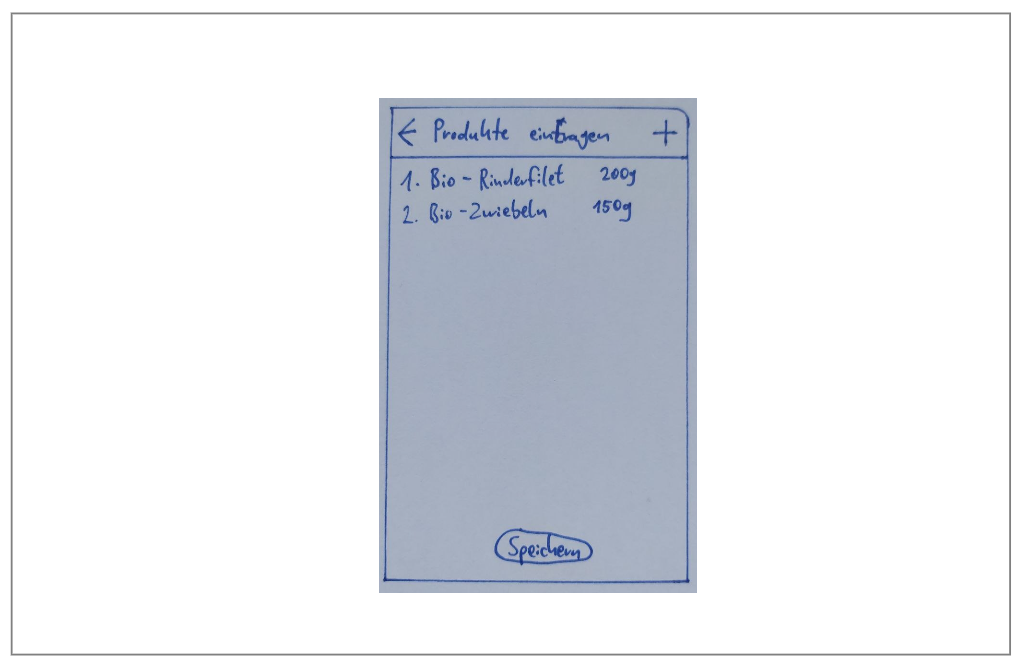 ← Produkte eintragen +
1. Bio - Rinderfilet 200g
2. Bio - Zwiebeln 150g
Speichern